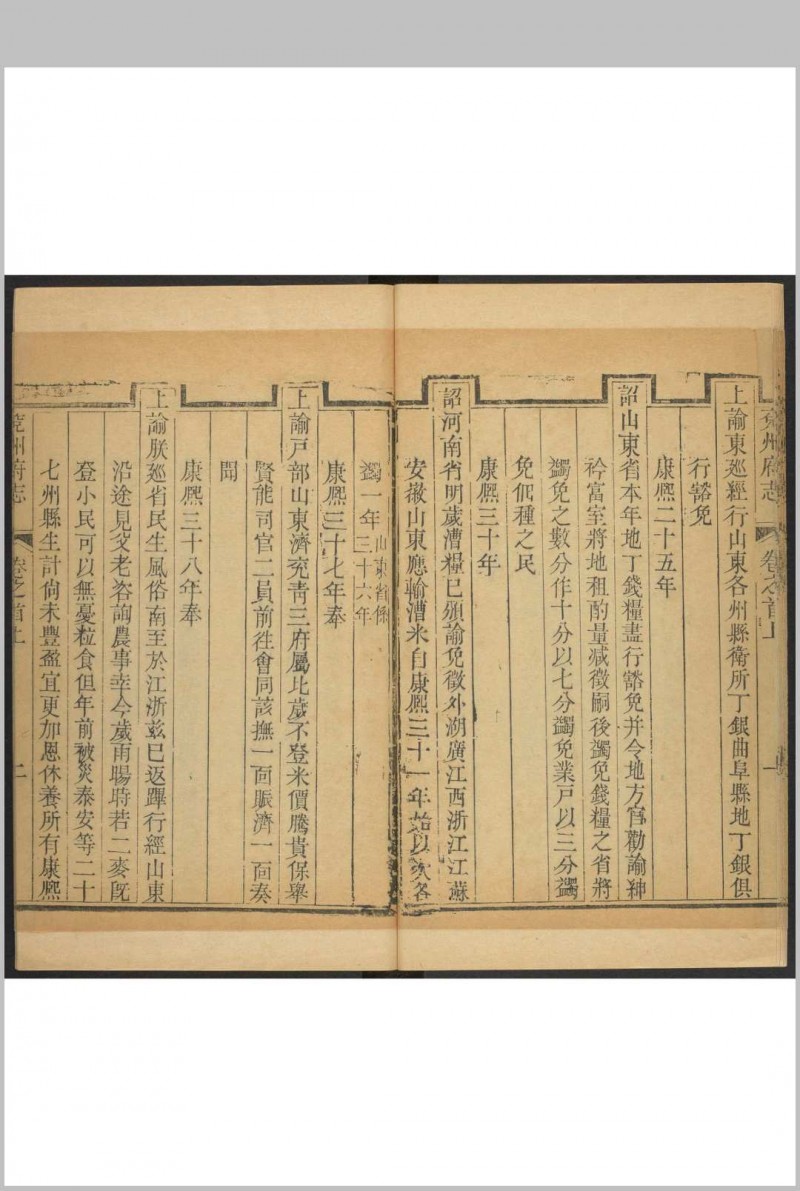 兖州府志 卷之首上 一
上諭東巡經行山東各州縣衛所丁銀曲阜縣地丁銀俱
行豁免
康熙二十五年
詔山東省本年地丁錢糧盡行豁免并令地方官勸諭紳
衿富室將地租酌量減徵嗣後蠲免錢糧之省將
蠲免之數分作十分以七分蠲免業戶以三分蠲
免佃種之民
康熙三十年
詔河南省明歲漕糧已頒諭免徵外湖廣江西浙江江蘇
安徽山東應輸漕米自康熙三十一年始以次各
蠲一年山東省係三十六年
康熙三十七年奉
上諭戶部山東濟兖青三府屬比歲不登米價騰貴保舉
賢能司官二員前往會同該撫一面賑濟一面奏
聞
康熙三十八年奉
上諭朕巡省民生風俗南至於江浙兹已返蹕行經山東
沿途見父老咨詢農事幸今歲雨暘時若二麥既
登小民可以無憂粒食但年前被災泰安等二十
七州縣生計尙未豐盈宜更加恩休養所有康熙
兖州府志 卷之首上 二